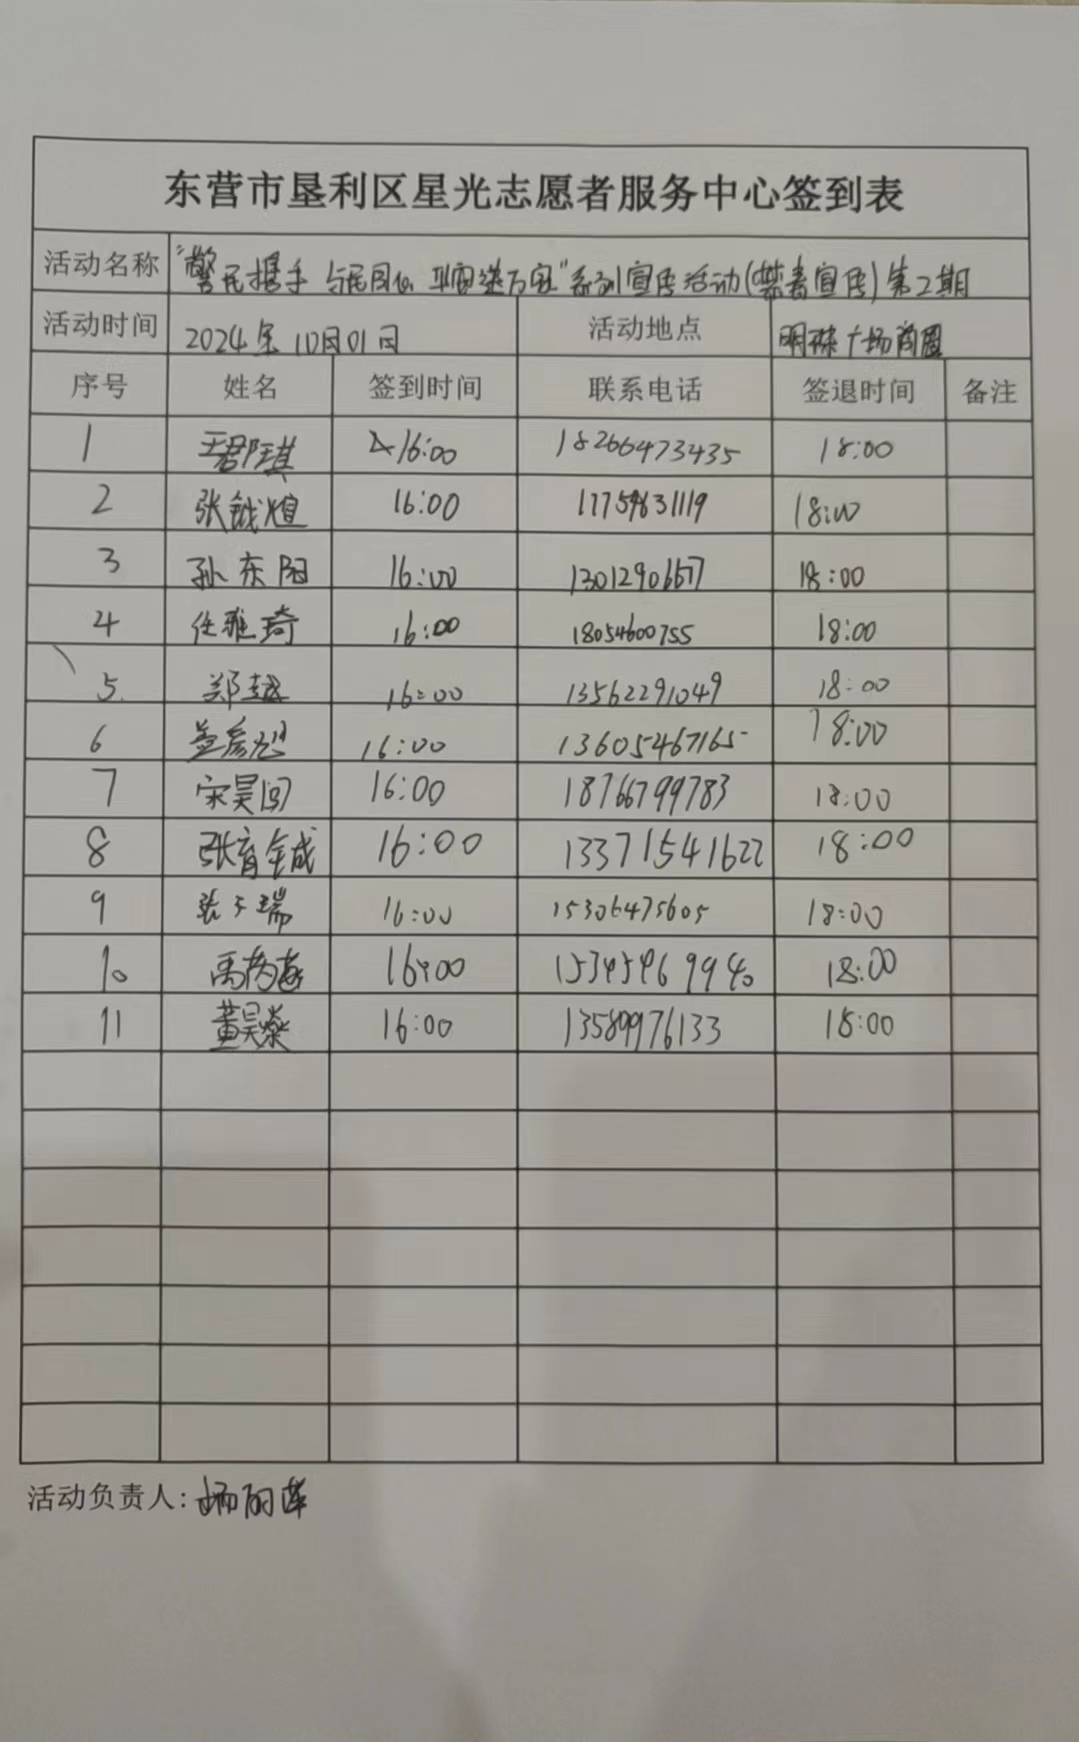 东营市垦利区星光志愿者服务中心签到表
活动名称 "警民携手 与民同心 平安进万家"系列宣传活动(禁毒宣传)第2期
活动时间 2024年10月01日 活动地点 明珠广场商圈
序号 姓名 签到时间 联系电话 签退时间 备注
1 王郡琪 16:00 18266473435 18:00
2 张钺煊 16:00 18:00
3 孙东阳 16:00 18:00
4 任雅琦 16:00 18054600755 18:00
5 郑越 16:00 13562291049 18:00
6 16:00 13605467165 18:00
7 宋昊闯 16:00 18766799783 18:00
8 张育铖 16:00 13371541622 18:00
9 张子瑞 16:00 15306475605 18:00
10 16:00 18:00
11 黄昊燊 16:00 13589976133 18:00
活动负责人: